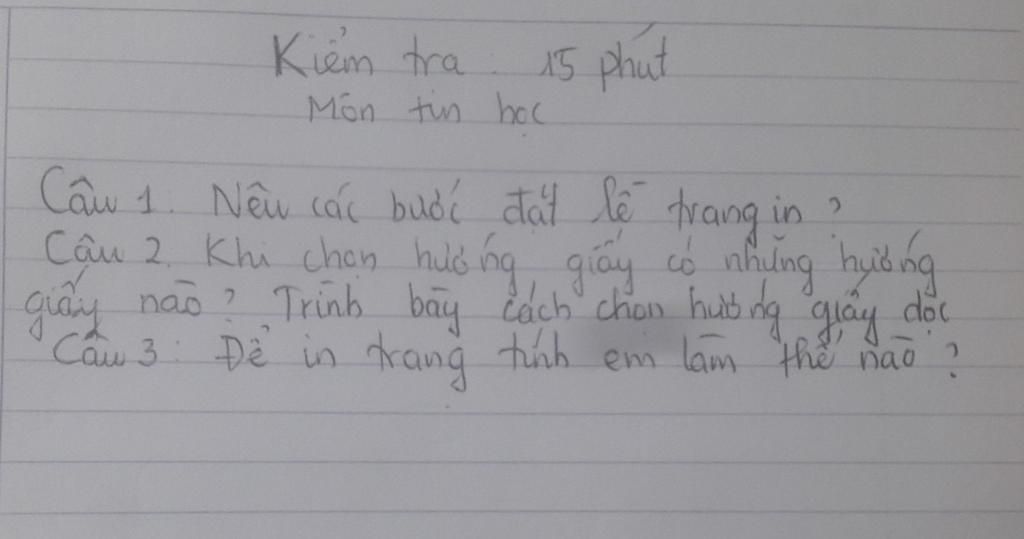 Kiểm tra : 15 phút
Môn tin học
Câu 1. Nêu các bước đặt lề trang in ?
Câu 2. Khi chọn hướng giấy có những hướng
giấy nào ? Trình bày cách chọn hướng giấy dọc
Câu 3 : Để in trang tính em làm thế nào ?